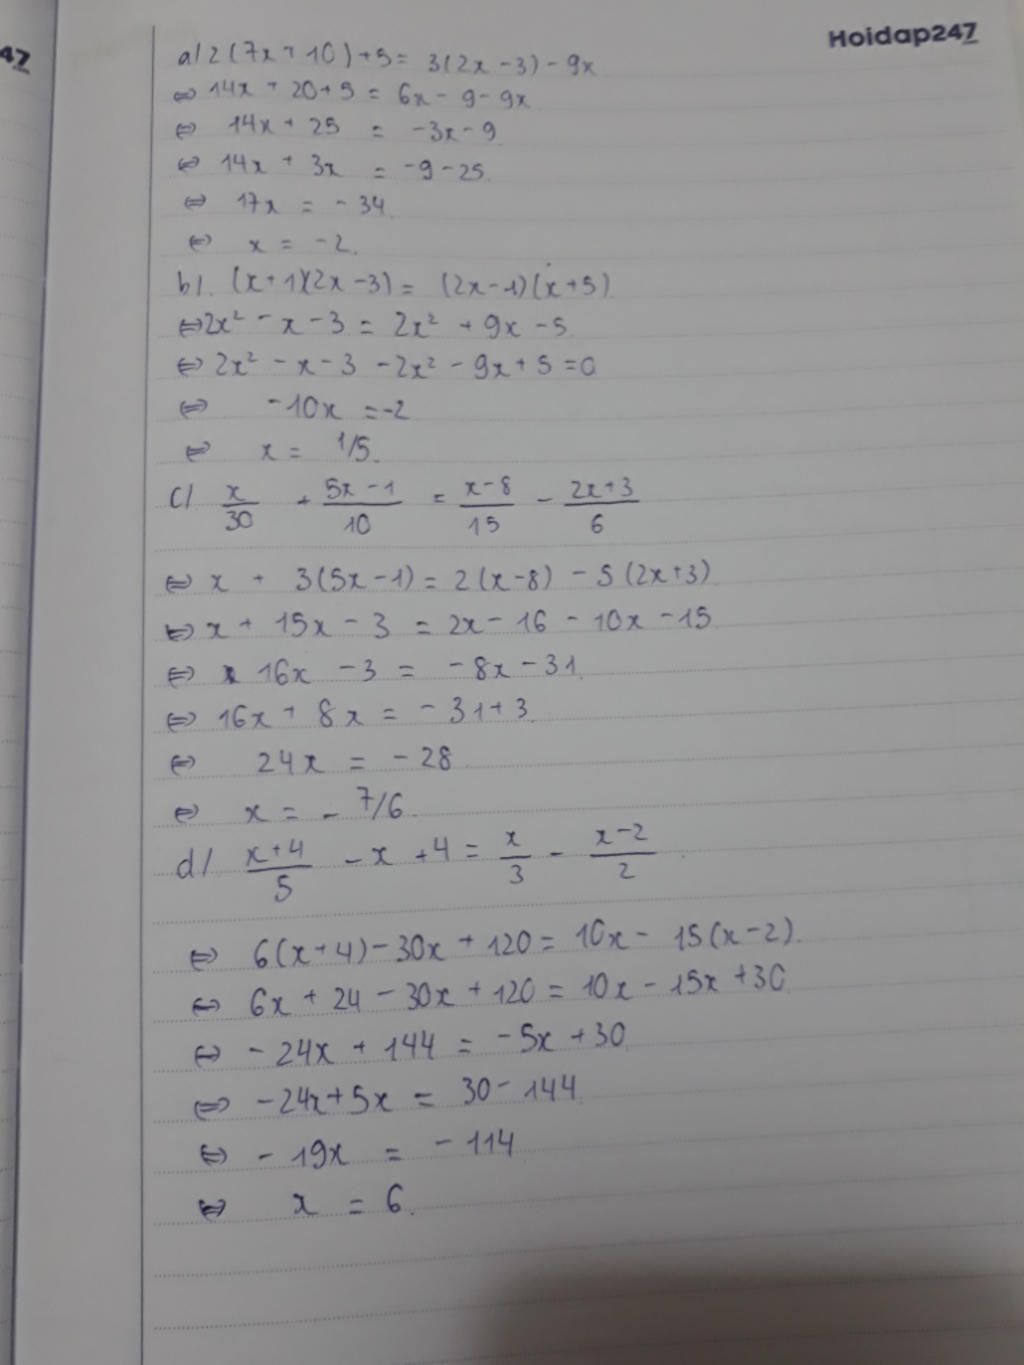 47
Hoidap247
a/ 2(7x + 10) + 5 = 3(2x - 3) - 9x
⇔ 14x + 20 + 5 = 6x - 9 - 9x
⇔ 14x + 25 = -3x - 9
⇔ 14x + 3x = -9 - 25.
⇔ 17x = -34.
⇔ x = -2.
b/. (x + 1)(2x - 3) = (2x - 1)(x + 5)
⇔ 2x² - x - 3 = 2x² + 9x - 5
⇔ 2x² - x - 3 - 2x² - 9x + 5 = 0
⇔ -10x = -2
⇔ x = 1/5.
c/ x/30 + (5x - 1)/10 = (x - 8)/15 - (2x + 3)/6
⇔ x + 3(5x - 1) = 2(x - 8) - 5(2x + 3)
⇔ x + 15x - 3 = 2x - 16 - 10x - 15
⇔ 16x - 3 = -8x - 31
⇔ 16x + 8x = -31 + 3
⇔ 24x = -28
⇔ x = -7/6.
d/ (x + 4)/5 - x + 4 = x/3 - (x - 2)/2.
⇔ 6(x + 4) - 30x + 120 = 10x - 15(x - 2).
⇔ 6x + 24 - 30x + 120 = 10x - 15x + 30
⇔ -24x + 144 = -5x + 30
⇔ -24x + 5x = 30 - 144
⇔ -19x = -114
⇔ x = 6.